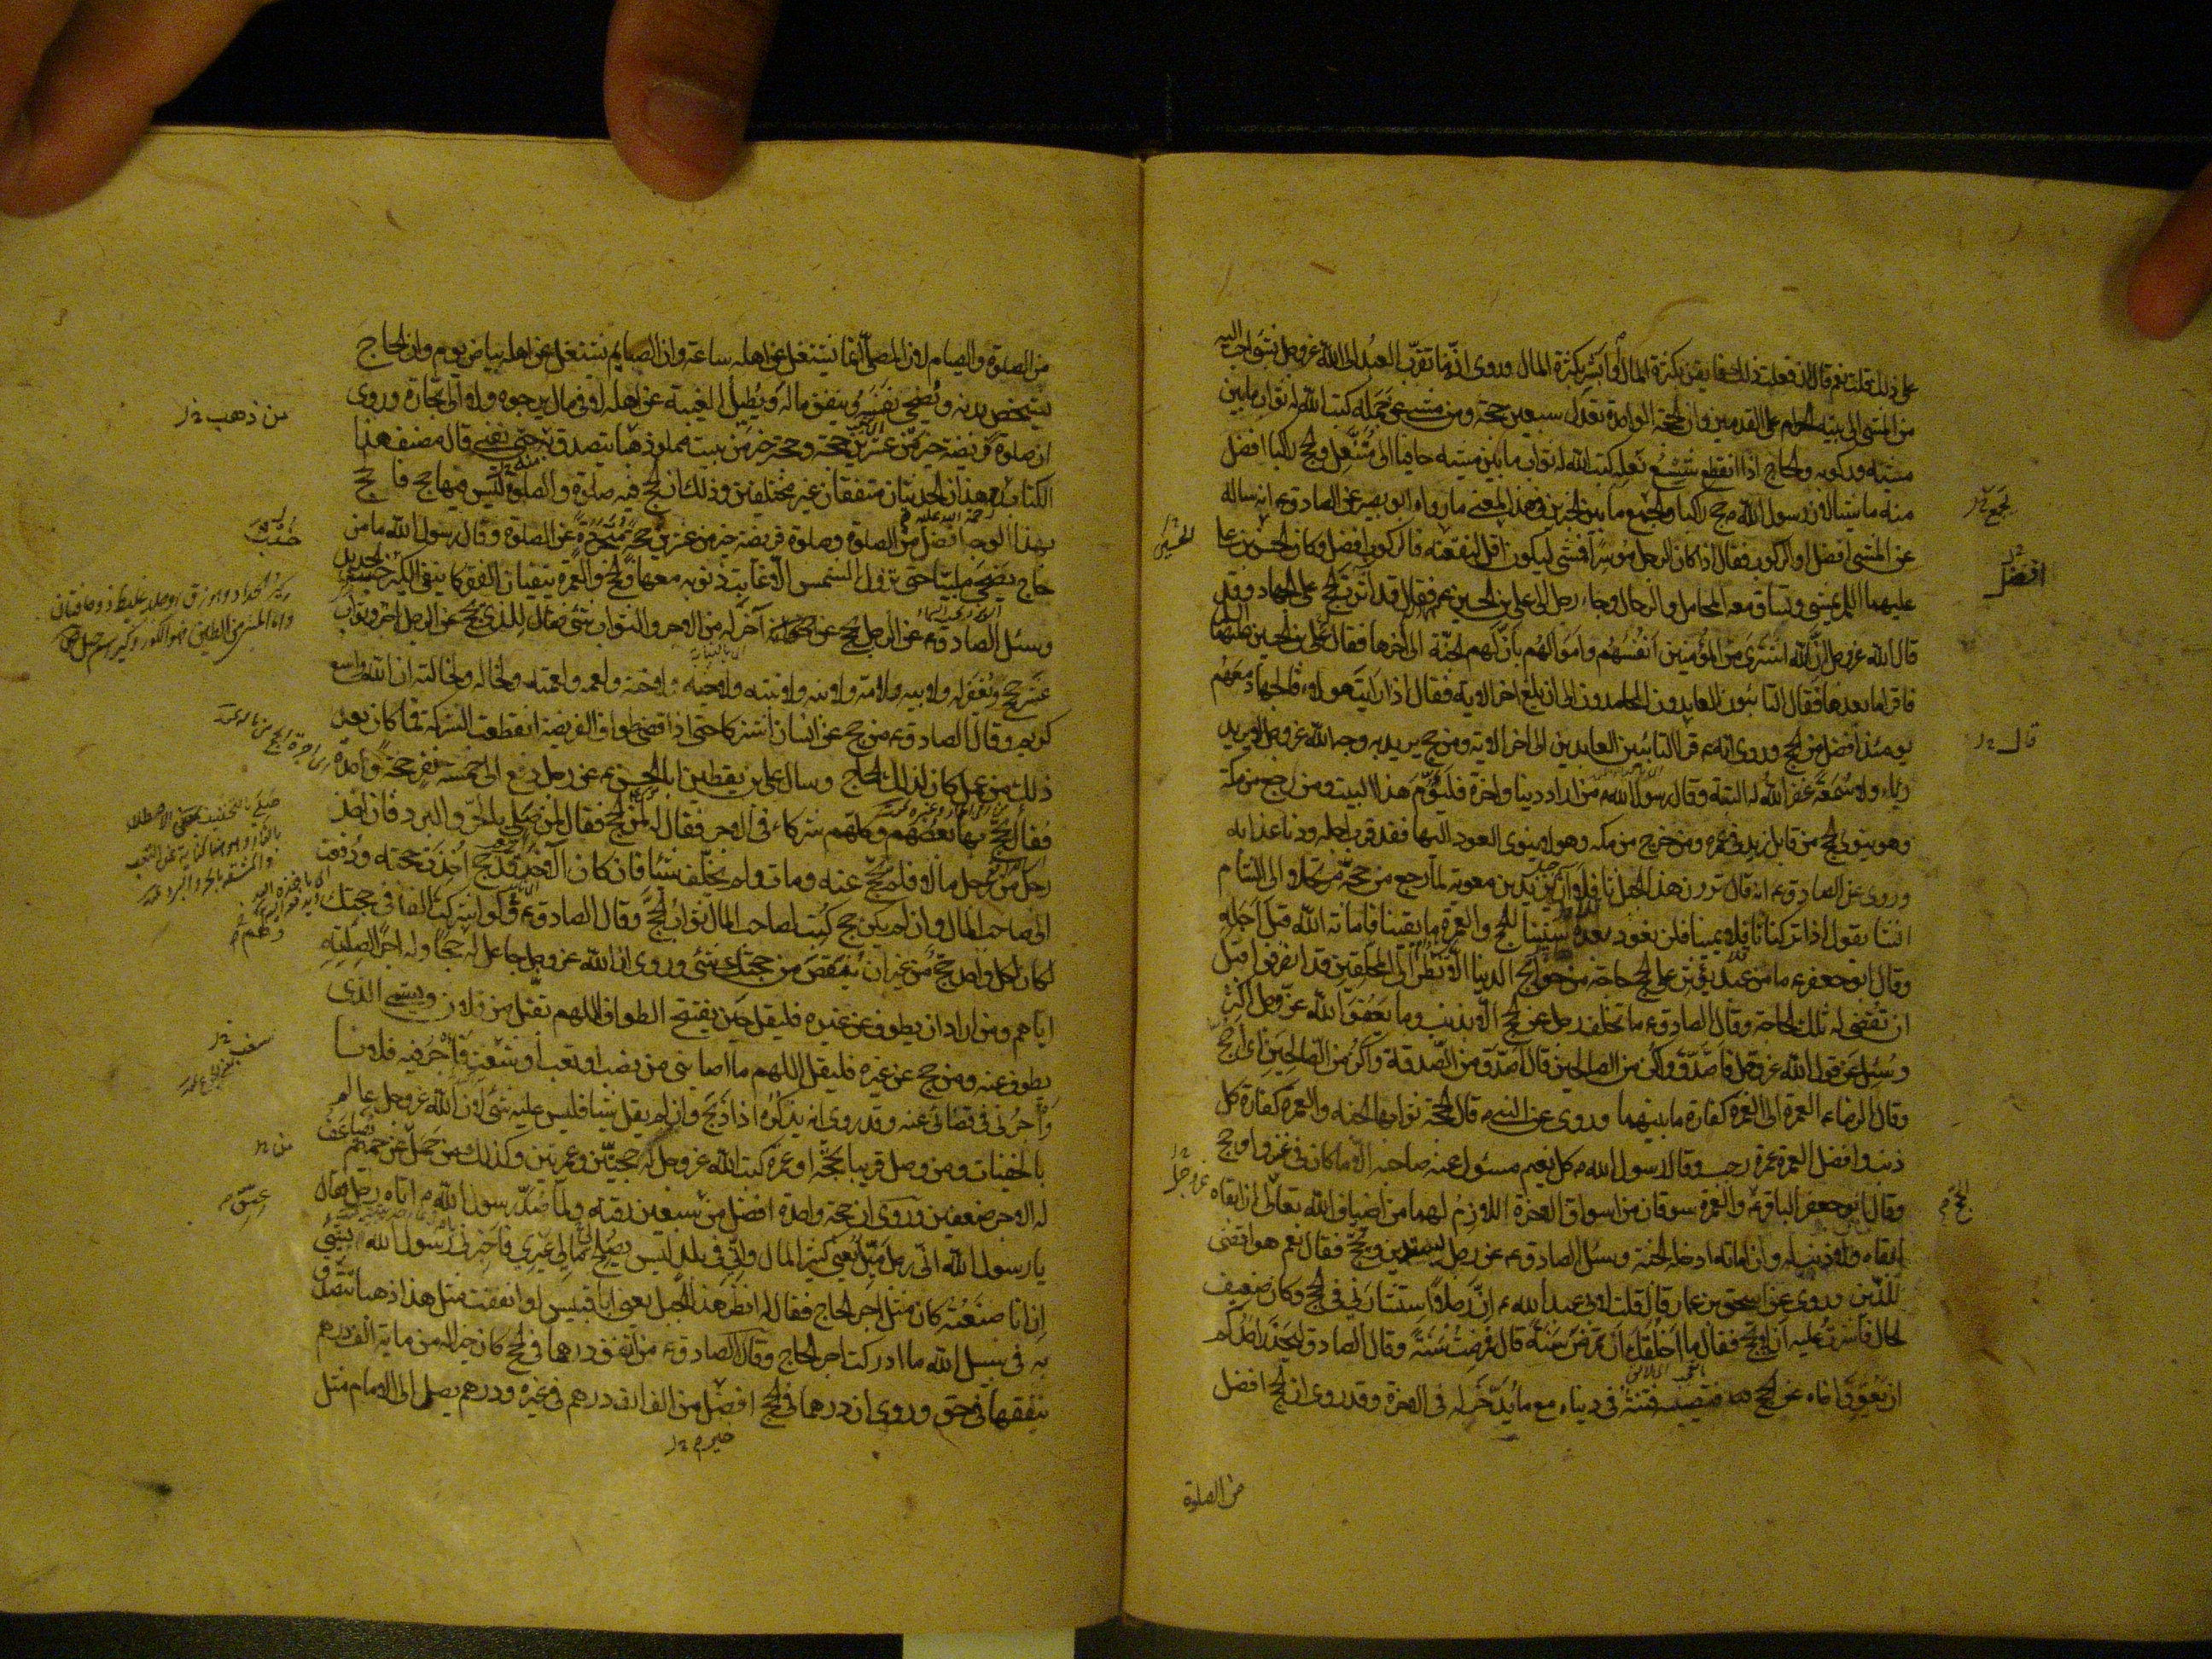 على ذلك قلت نعم قال ان فعلت ذلك فايقن بكثرة المال او ابشر بكثرة المال وروى انه ما تقرب العبد الى الله عز وجل بشئ احب اليه
من المشى الى بيته الحرام على القدمين وان الحجة الواحدة تعدل سبعين حجة ومن مشى عن جمله كتب الله له ثواب ما بين
مشيه وركوبه والحاج اذا انقطع شسع نعله كتب الله له ثواب ما بين مشيه حافيا الى متنعل والحج راكبا افضل
منه ماشيا لان رسول الله ص حج راكبا والجمع ما بين الخبرين فى هذا المعنى ما رواه ابو بصير عن الصادق ع انه ساله
عن المشى افضل او الركوب فقال اذا كان الرجل موسرا فمشى ليكون اقل لنفقته فالركوب افضل وكان الحسين بن على
عليهما السلم يمشى وتساق معه المحامل والرحال وجاء رجل الى على بن الحسين ع فقال قد آثرت الحج على الجهاد وقد
قال الله عز وجل ان الله اشترى من المؤمنين انفسهم واموالهم بان لهم الجنة الى اخرها فقال على بن الحسين عليهما السلم
فاقرا ما بعدها فقال التائبون العابدون الحامدون الى ان بلغ اخر الاية فقال اذا رايت هولاء فالجهاد معهم
يومئذ افضل من الحج وروى انه ع قرا التائبين العابدين الى اخر الاية ومن حج يريد به وجه الله عز وجل لا يريد
رياء ولا سمعة غفر الله له البتة وقال رسول الله ص من اراد دنيا واخرة فليؤم هذا البيت ومن رجع من مكة
وهو ينوى الحج من قابل زيد فى عمره ومن خرج من مكه وهو لا ينوى العود اليها فقد قرب اجله ودنا عذابه
وروى عن الصادق ع انه قال ترون هذا الجبل ثافلا ان يزيد بن معوية لما رجع من حجه مرتحلا الى الشام
انشا يقول اذا تركنا ثافلا يمينا فلن نعود بعده سنينا للحج والعمرة ما بقينا فاماته الله قبل اجله
وقال ابو جعفر ع ما من عبد يؤثر على الحج حاجة من حوائج الدنيا الا نظر الى المحلقين قد انصرفوا قبل
ان تقضى له تلك الحاجة وقال الصادق ع ما تخلف رجل عن الحج الا بذنب وما يعفو الله عز وجل اكثر
وسئل عن قول الله عز وجل فاصدق واكن من الصالحين قال اصدق من الصدقة واكن من الصالحين اى احج
وقال الرضا ع العمرة الى العمرة كفارة ما بينهما وروى عن النبى ص قال الحجة ثوابها الجنة والعمرة كفارة كل
ذنب وافضل العمرة عمرة رجب وقال رسول الله ص كل نعيم مسئول عنه صاحبه الا ما كان فى غزو او حج
وقال ابو جعفر الباقر ع الحج والعمرة سوقان من اسواق الاخرة اللازم لهما من اضياف الله تعالى ان ابقاه
ابقاه ولا ذنب له وان اماته ادخله الجنة وسئل الصادق ع عن رجل يستدين ويحج فقال نعم هو اقضى
للدين وروى عن اسحق بن عمار قال قلت لابى عبد الله ع ان رجلا استشارنى فى الحج وكان ضعيف
الحال فاشرت عليه ان لا يحج فقال ما اخلقك ان تمرض سنة قال فمرضت سنة وقال الصادق ع ليحذر احدكم
ان يعوق اخاه عن الحج فتصيبه فتنة فى دنياه مع ما يدخر له فى الاخرة وقد روى ان الحج افضل
من الصلوة
الجمع
الحسين
افضل
قال
عز وجل
الحج
من الصلوة والصيام لان المصلى انما يشتغل عن اهله ساعة وان الصايم يشتغل عن اهله بياض يوم وان الحاج
يشخص بدنه ويضحى نفسه وينفق ماله ويطيل الغيبة عن اهله لا فى مال يرجوه ولا الى تجارة وروى
ان صلوة فريضة خير من عشرين حجة وحجة خير من بيت مملو ذهبا يتصدق به حتى يفنى قال مصنف هذا
الكتاب وهذان الحديثان متفقان غير مختلفين وذلك ان الحج فيه صلوة والصلوة ليس فيها حج فالحج
بهذا الوجه افضل من الصلوة وصلوة فريضة خير من عشرين حجة متجردة عن الصلوة وقال رسول الله ما من
حاج يضحى ملبيا حتى تزول الشمس الا غابت ذنوبه معها والحج والعمرة ينفيان الفقر كما ينفى الكير خبث الحديد
وسئل الصادق ع عن الرجل يحج عن اخر له من الاجر والثواب شئ فقال للذى يحج عن الرجل اجر وثواب
عشر حجج ويغفر له ولابيه ولامه ولابنه ولابنته ولاخيه ولاخته ولعمه ولعمته ولخاله ولخالته ان الله واسع
كريم وقال الصادق ع من حج عن انسان اشتركا حتى اذا قضى طواف الفريضة انقطعت الشركة فما كان بعد
ذلك من عمل كان لذلك الحاج وسال على بن يقطين ابا الحسن ع عن رجل دفع الى خمسة نفر حجة واحدة
فقال يحج بها بعضهم وكلهم شركاء فى الاجر فقال له لمن الحج فقال لمن صلى بالحر والبرد فان اخذ
رجل من رجل مالا فلم يحج عنه ومات ولم يخلف شيئا فان كان الاخذ قد حج اخذت حجته ودفعت
الى صاحب المال وان لم يكن حج كتب لصاحب المال ثواب الحج وقال الصادق ع لو اشركت الفا فى حجتك
لكان لكل واحد حج من غير ان ينقص من حجتك شئ وروى ان الله عز وجل جاعل له حجا وله اجر لصلته
اياهم ومن اراد ان يطوف عن غيره فليقل حين يفتتح الطواف اللهم تقبل من فلان ويسمى الذى
يطوف عنه ومن حج عن غيره فليقل اللهم ما اصابنى من نصب او تعب او شعث فاجر فيه فلانا
واجرنى فى قضائى عنه وقد روى انه يذكره اذا ذبح وان لم يقل شيئا فليس عليه شئ لان الله عز وجل عالم
بالخفيات ومن وصل قريبا بحجة او عمرة كتب الله عز وجل له حجتين وعمرتين وكذلك من حمل عن حميم يضاعف
له الاجر ضعفين وروى ان حجة واحدة افضل من سبعين رقبة ولما صد رسول الله ص اتاه رجل فقال
يا رسول الله انى رجل ميل يعنى كثير المال وانى فى بلد ليس يصلح مالى غيرى فاخبرنى يا رسول الله بشئ
ان انا صنعته كان مثل اجر الحاج فقال له انظر هذا الجبل يعنى ابا قبيس لو انفقت مثل هذا ذهبا تتصدق
به فى سبيل الله ما ادركت اجر الحاج وقال الصادق ع من انفق درهما فى الحج كان خيرا له من ماية الف درهم
ينفقها فى حق وروى ان درهما فى الحج افضل من الفى الف درهم فى غيره ودرهم يصل الى الامام مثل
من ذهب
خبث
سغب
من
عتق
خير